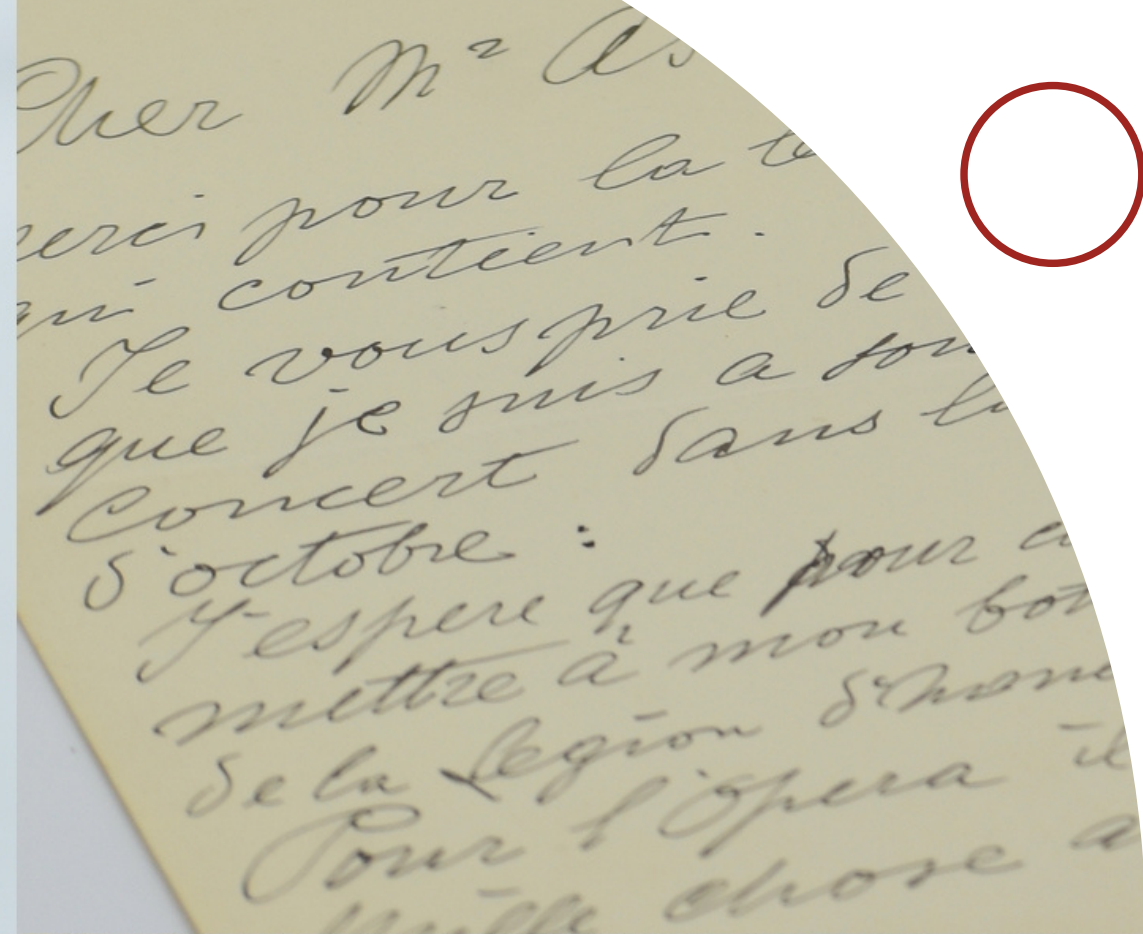 Cher Mr
pour la
contient.
Je vous prie de
que je suis a
concert dans
d'octobre :
J'espere que pour
mettre à mon
de la legion
Pour l'opera il
Mille chose